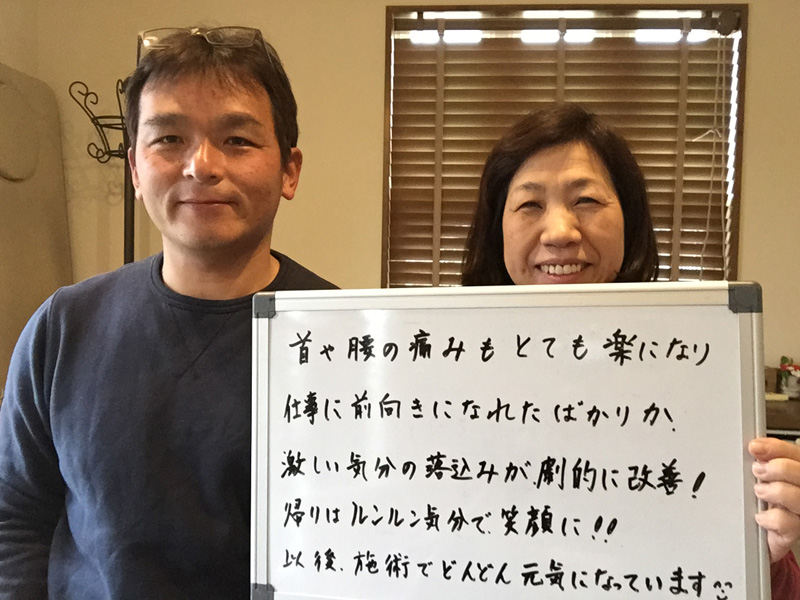 首や腰の痛みもとても楽になり
仕事に前向きになれたばかりか、
激しい気分の落込みが、劇的に改善！
帰りはルンルン気分で、笑顔に！！
以後、施術でどんどん元気になっています^^